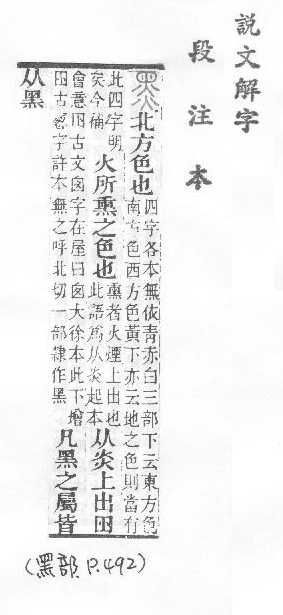 說文解字
段注本
黑北方色也四字各本無依青赤白三部下云東方色
南方色西方色黃下亦云地之色則當有
此四字明
矣今補火所熏之色也熏者火煙上出也
此語爲从炎起本从炎上出𡆧
會意𡆧古文囱字在屋曰囱大徐本此下增
𡆧古窻字許本無之呼北切一部隸作黑凡黑之屬皆
从黑
(黑部 P.492)